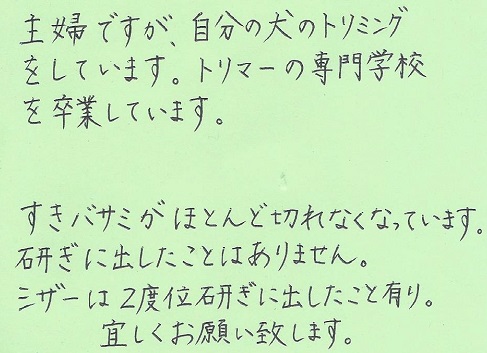 主婦ですが、自分の犬のトリミング
をしています。トリマーの専門学校
を卒業しています。
すきバサミがほとんど切れなくなっています。
研ぎに出したことはありません。
シザーは2度位研ぎに出したこと有り。
宜しくお願い致します。